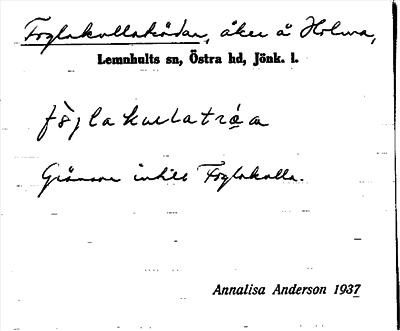 Foglakullakådan, åker å Holma,
Lemnhults sn, Östra hd, Jönk. l.
Gränsar intill Foglakulla.
Annalisa Anderson 1937